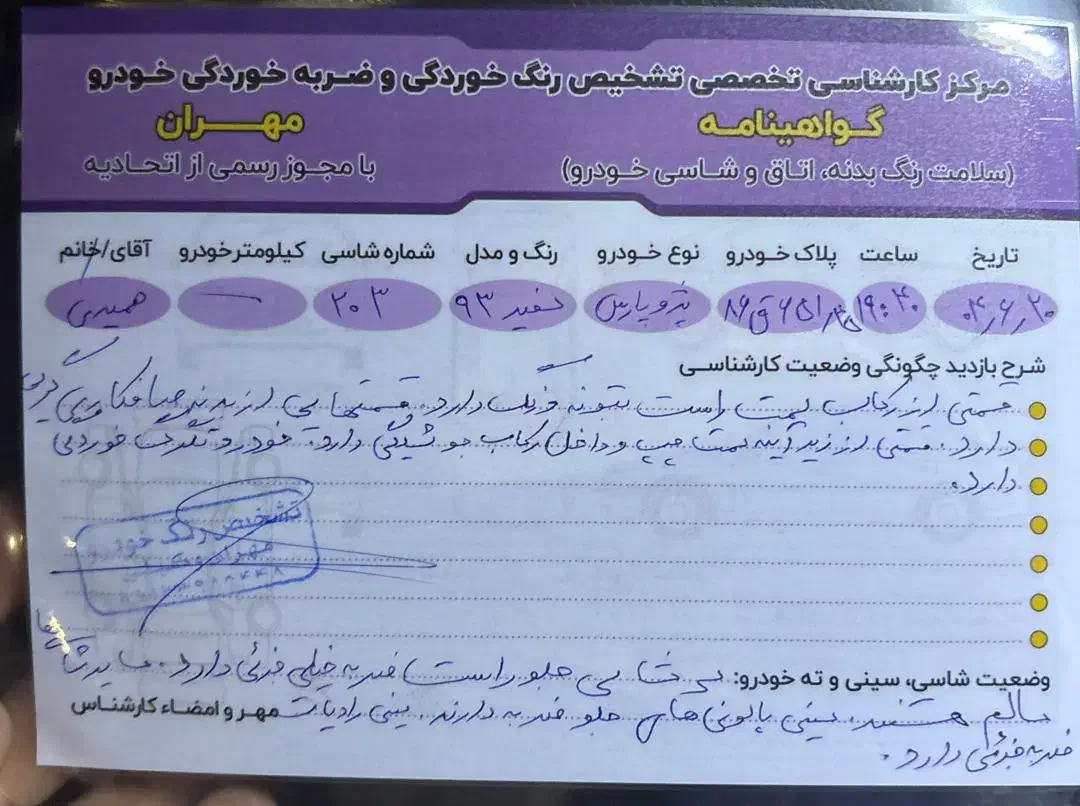 مرکز کارشناسی تخصصی تشخیص رنگ خوردگی و ضربه خوردگی خودرو
گواهینامه
مهران
(سلامت رنگ بدنه، اتاق و شاسی خودرو)
با مجوز رسمی از اتحادیه
تاریخ ساعت پلاک خودرو نوع خودرو رنگ و مدل شماره شاسی کیلومتر خودرو آقای/خانم
۰۴,۶,۲۰ ۱۹:۴۰ پژو پارس سفید ۹۳ ۲۰۳ —
شرح بازدید چگونگی وضعیت کارشناسی
قسمتی از رکاب سمت راست بتونه و رنگ دارد. قسمتهایی از بدنه صافکاری
دارد. قسمتی از زیر آینه سمت چپ و داخل رکاب جوشیدگی دارد. خودرو تگرگ خوردگی
دارد.
تشخیص رنگ خودرو
وضعیت شاسی، سینی و ته خودرو: سر شاسی جلو راست ضربه خیلی جزئی دارد. سایر شاسی‌ها
سالم هستند. سینی پالونی‌های جلو ضربه دارند. سینی رادیات
مهر و امضاء کارشناس
ضربه جزئی دارد.